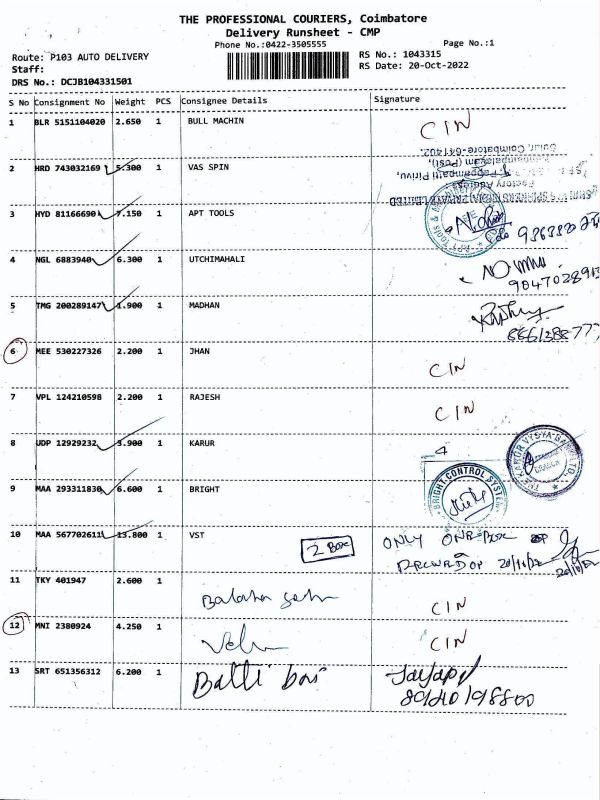 THE PROFESSIONAL COURIERS, Coimbatore
Delivery Runsheet - CMP
Phone No.:0422-3505555
Page No.:1
Route: P103 AUTO DELIVERY
RS No.: 1043315
Staff:
RS Date: 20-Oct-2022
DRS No.: DCJB104331501
S No Consignment No Weight PCS Consignee Details Signature
1 BLR 5151104020 2.650 1 BULL MACHIN CIN
2 HRD 743032169 5.300 1 VAS SPIN
3 HYD 81166690 7.150 1 APT TOOLS
4 NGL 6883940 6.300 1 UTCHIMAHALI
5 TMG 200289147 1.900 1 MADHAN
6 MEE 530227326 2.200 1 JHAN CIN
7 VPL 124210598 2.200 1 RAJESH CIN
8 UDP 12929232 3.900 1 KARUR
THE KARUR VYSYA BANK LTD.
9 MAA 293311830 6.600 1 BRIGHT
BRIGHT CONTROL SYSTEM
10 MAA 567702611 13.800 1 VST 2 Box ONLY ONE BOX
11 TKY 401947 2.600 1 CIN
12 MNI 2380924 4.250 1 CIN
13 SRT 651356312 6.200 1